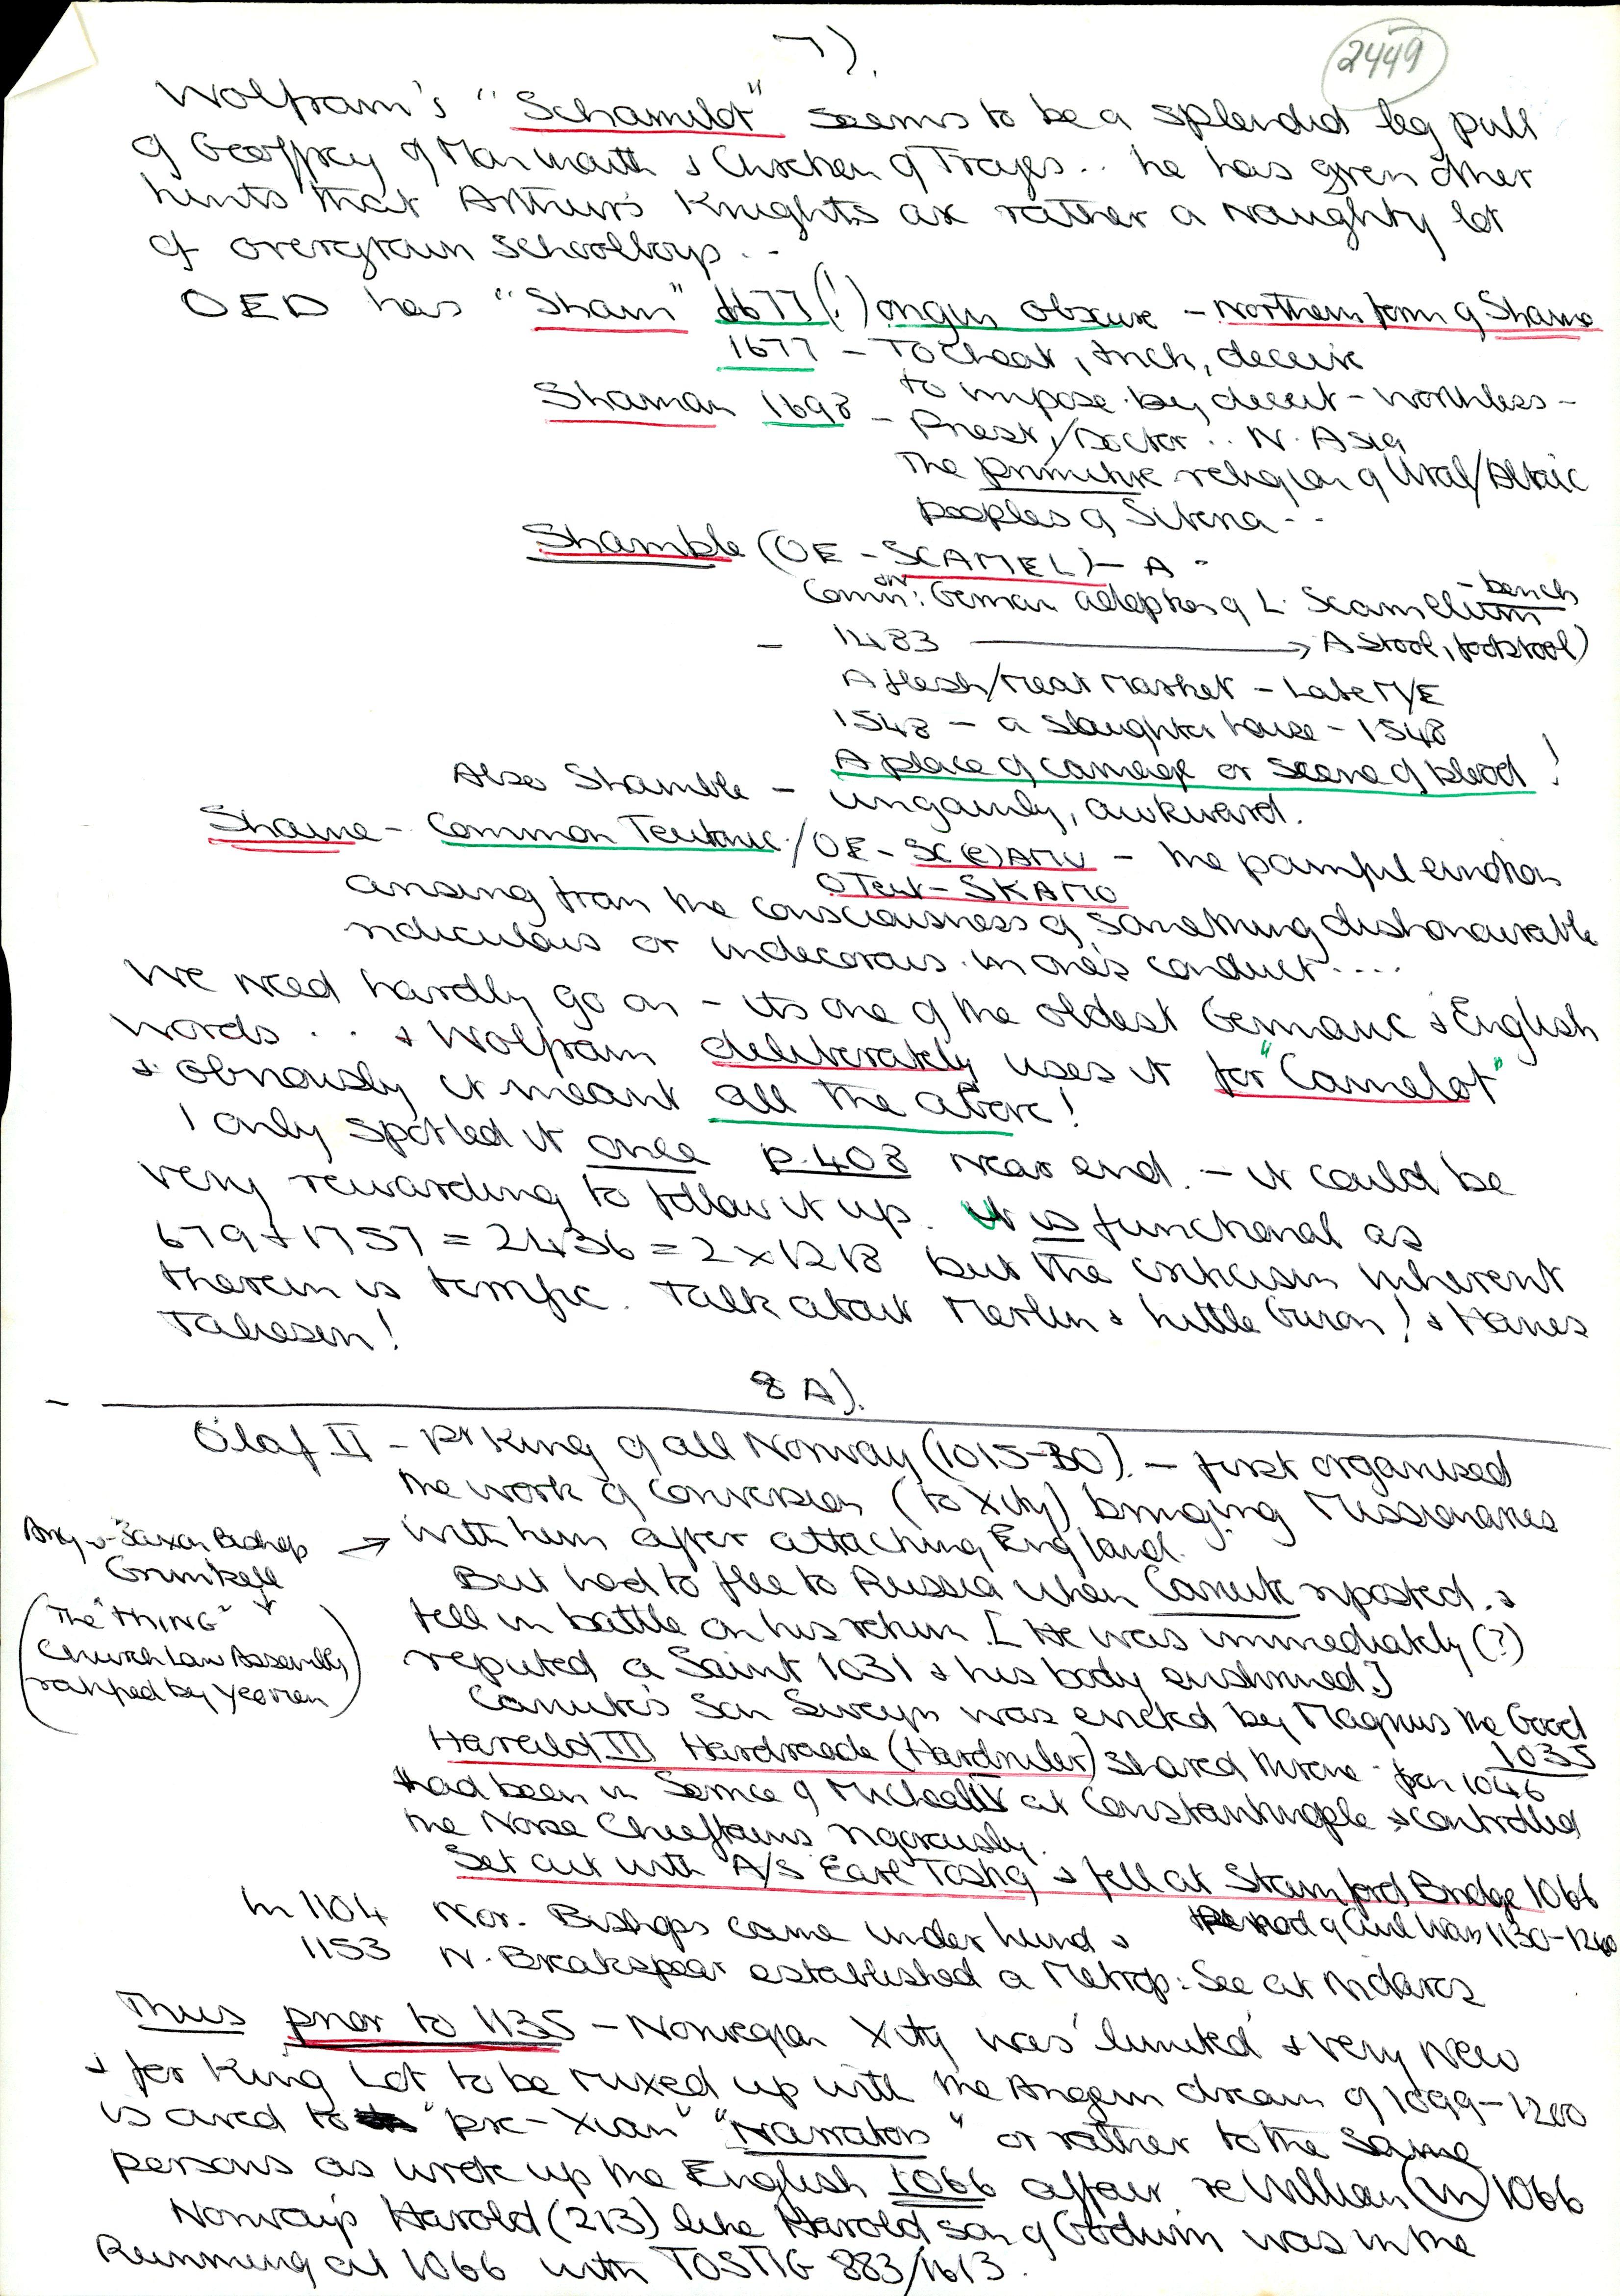 7).
2449
Wolfram's "Schamilot" seems to be a splendid leg pull
of Geoffrey of Monmouth & Chrétien of Troyes.. he has given other
hints that Arthur's Knights are rather a naughty lot
of overgrown schoolboys ..
OED has "Sham" 1677(!) origin obscure - Northern form of Shame
1677 - To cheat, trick, deceive
to impose by deceit - worthless -
Shaman 1698 - Priest/Doctor .. N. Asia
The primitive religion of Ural/Altaic
peoples of Siberia ..
Shamble (OE - SCAMEL) - A -
Commn: German adoption of L. Scamellum - bench
- 1483 → A stool, footstool)
A flesh/Meat Market - Late M/E
1548 - a slaughter house - 1548
A place of carnage or scene of blood!
Also Shamble - ungainly, awkward.
Shame - Common Teutonic / OE - SC(E)AMU - the painful emotion
OTeut - SKAMO
arising from the consciousness of something dishonourable
ridiculous or indecorous in one's conduct ....
We need hardly go on - its one of the oldest Germanic & English
words . . & Wolfram deliberately uses it for "Camelot"
& obviously it meant all the above!
I only spotted it once p.408 near end. - it could be
very rewarding to follow it up. It is functional as
679 + 1757 = 2436 = 2 x 1218 but the criticism inherent
therein is terrific. Talk about Merlin & little Guron! & Hanes
Taliesin!
8A).
Olaf II - Pr King of all Norway (1015-30). - first organised
the work of conversion (to Xity) bringing Missionaries
with him after attacking England.
Anglo-Saxon Bishop →
Grimkell
(The "THING"
Church Law Assembly
ratified by Yeomen)
But had to flee to Russia when Canute riposted. &
fell in battle on his return. [He was immediately (?)
reputed a Saint 1031 & his body enshrined.]
Canute's son Sweyn was evicted by Magnus the Good
1035
Harald III Hardraade (Hardruler) shared throne from 1046
had been in Service of Michael IV at Constantinople & controlled
the Norse Chieftains rigorously.
Set out with A/S Earl Tostig & fell at Stamford Bridge 1066
In 1104 Nor. Bishops came under Lund & Period of Civil Wars 1130-1240
1153 N. Breakspear established a Metrop: See at Nidaros
Thus prior to 1135 - Norwegian Xity was limited & very new
& for King Lot to be mixed up with the Angevin dream of 1099-1200
is owed to "pre-Xian" "Narrators" or rather to the same
persons as wrote up the English 1066 affair re William (in) 1066
Norway's Harold (213) like Harold son of Godwin was in the
Running at 1066 with TOSTIG 883/1613.